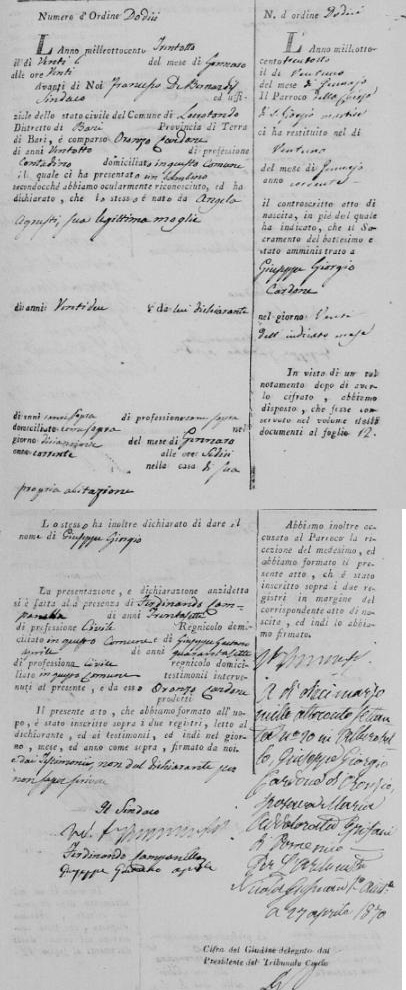 Numero d'Ordine Dodici
L'Anno milleottocento Trentotto
il dì Venti del mese di Gennaro
alle ore Venti
Avanti di Noi Francesco De Bernardis
Sindaco ed uffi-
ziale dello stato civile del Comune di Locorotondo
Distretto di Bari Provincia di Terra
di Bari, è comparso Oronzo Cardone
di anni Ventotto di professione
Contadino domiciliato in questo Comune
il quale ci ha presentato un bambino
secondochè abbiamo ocularmente riconosciuto, ed ha
dichiarato, che lo stesso è nato da Angela
Agrusti, sua legittima moglie
di anni Ventidue e da lui dichiarante
di anni come sopra di professione come sopra
domiciliato come sopra nel
giorno diciannove del mese di Gennaro
anno corrente alle ore Sedici
nella casa di sua
propria abitazione
Lo stesso ha inoltre dichiarato di dare il
nome di Giuseppe Giorgio
La presentazione, e dichiarazione anzidetta
si è fatta alla presenza di Ferdinando Cam-
panella di anni Trentasette
di professione Civile Regnicolo domi-
ciliato in questo Comune e di Giuseppe
di anni Quarantasette
di professione Civile regnicolo domici-
liato in questo Comune testimonii interve-
nuti al presente, e da esso Oronzo Cardone
prodotti
Il presente atto, che abbiamo formato all'uo-
po, è stato inscritto sopra i due registri, letto al
dichiarante, ed ai testimonii, ed indi nel gior-
no, mese, ed anno come sopra, firmato da noi
e dai testimonii, non dal dichiarante per
non saper scrivere
Il Sindaco
Ferdinando Campanella
Giuseppe
N. d'ordine Dodici
L'Anno mille otto-
cento trentotto
il dì Ventuno
del mese di Gennajo
Il Parroco della Chiesa
di S. Giorgio
ci ha restituito nel dì
Ventuno
del mese di Gennajo
anno corrente
il controscritto atto di
nascita, in piè del quale
ha indicato, che il Sa-
cramento del battesimo è
stato amministrato a
Giuseppe Giorgio
Cardone
nel giorno Venti
dell'indicato mese
In vista di un tal
notamento dopo di aver-
lo cifrato, abbiamo
disposto, che fosse con-
servato nel volume delli
documenti al foglio 12.
Abbiamo inoltre ac-
cusato al Parroco la ri-
cezione del medesimo, ed
abbiamo formato il pre-
sente atto, ch'è stato
inscritto sopra i due re-
gistri in margine del
corrispondente atto di na-
scita, ed indi lo abbia-
mo firmato.
A dì dieci marzo
mille ottocento settan-
ta
Giuseppe Giorgio
Cardone di Oronzo,
sposava Maria
Addolorata
di
a 27 aprile 1870
Cifra del Giudice delegato dal
Presidente del Tribunale Civile